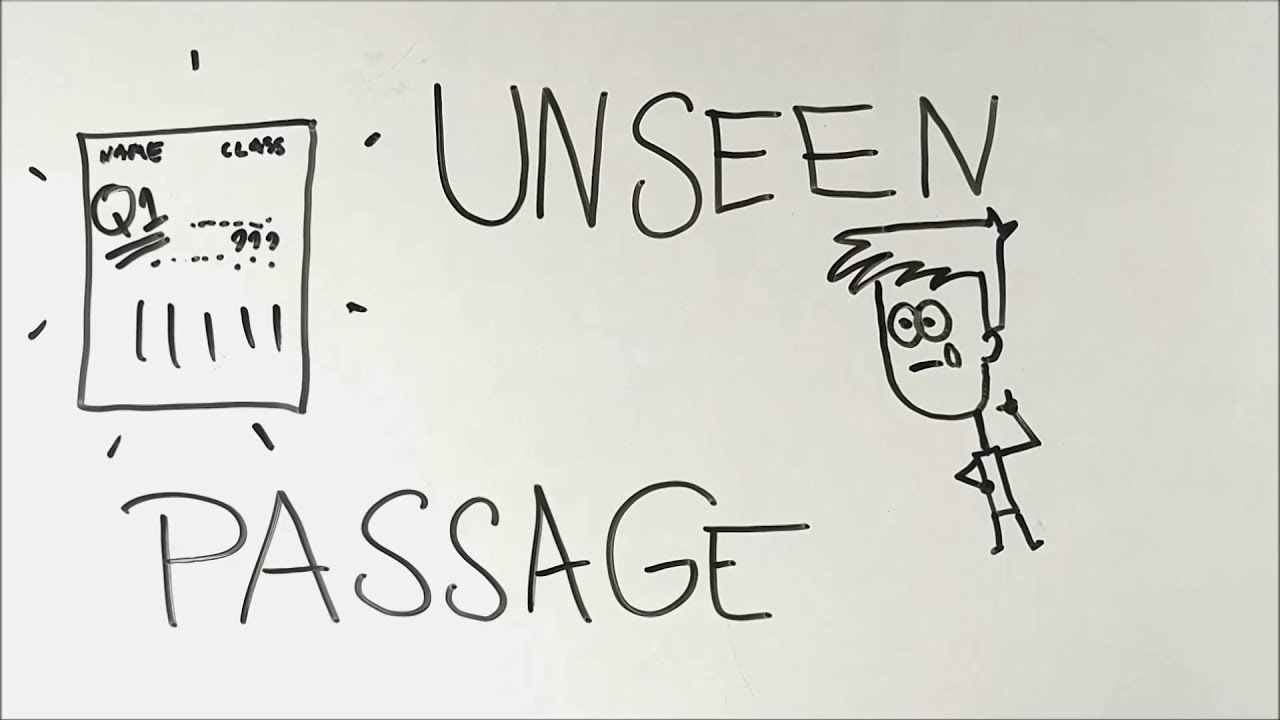 UNSEEN
NAME CLASS
Q1
???
PASSAGE